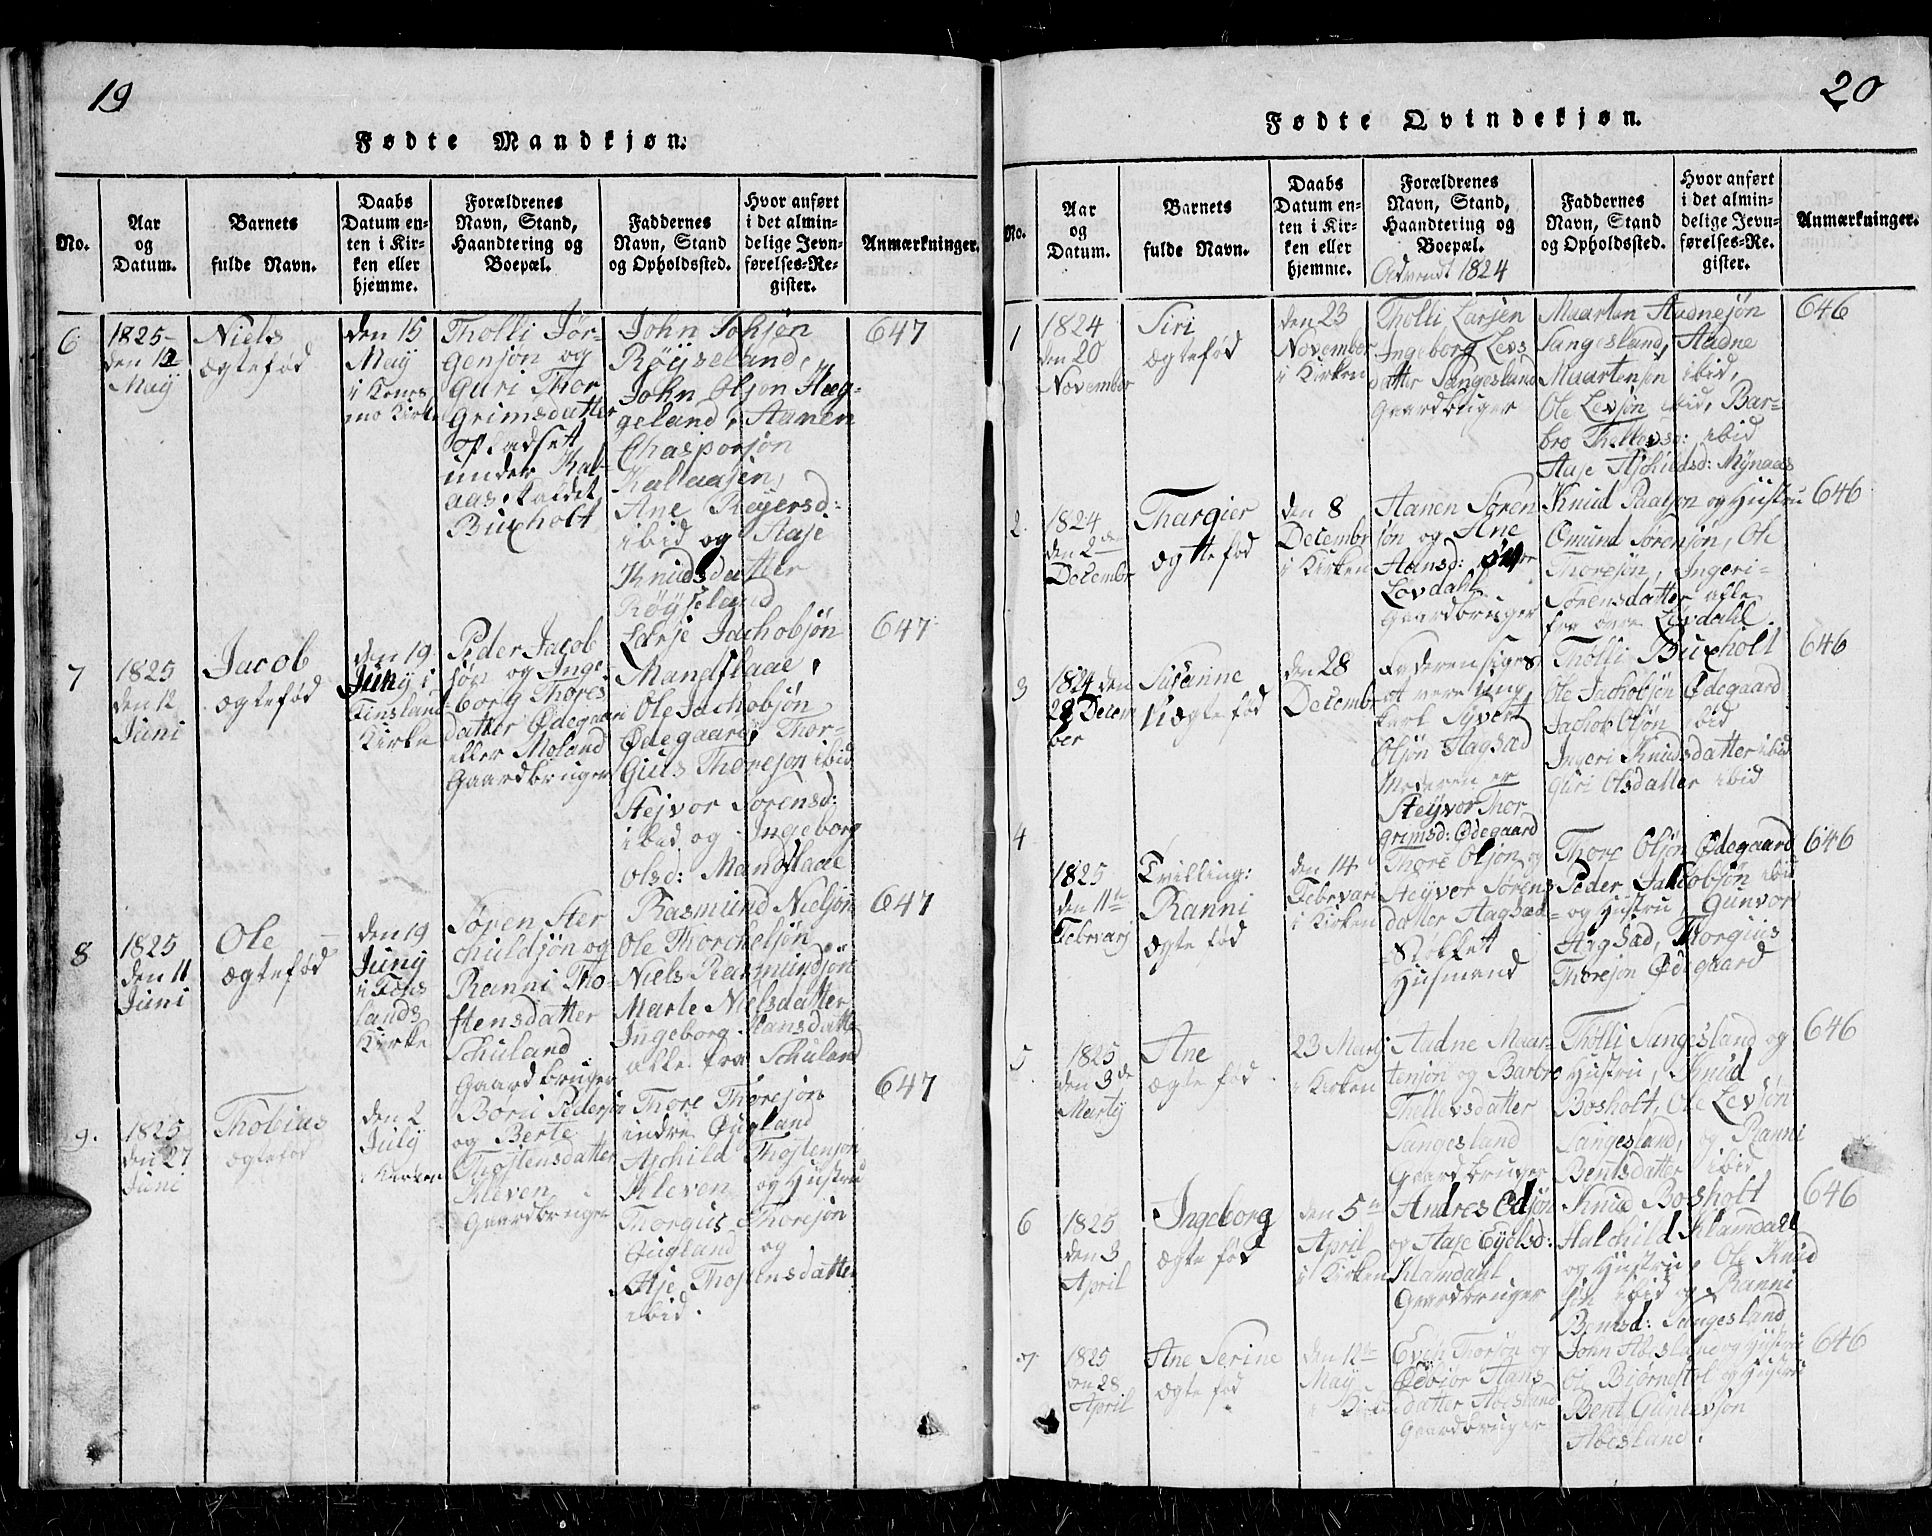 19
Fødte Mandkjøn.
No.
Aar
og
Datum.
Barnets
fulde Navn.
Daabs
Datum en-
ten i Kir-
ken eller
hjemme.
Forældrenes
Navn, Stand,
Haandtering og
Boepæl.
Faddernes
Navn, Stand
og Opholdssted.
Hvor anført
i det almin-
delige Jevn-
førelses-Re-
gister.
Anmærkninger.
6
1825
den 12
May
Niels
ægtefød
den 15
May
i
Kirke
Tholli Jør-
gensøn og
Guri Thor
Grimsdatter
Pladset
under Kal-
aas kaldet
Buxholt
John Johsøn
Røyseland,
John Olsøn Hæg-
geland, Aanen
Chasporsøn
Kallaasen,
Ane Reyersd:
ibid og Aase
Knudsdatter
Røyseland
647
7
1825
den 12
Juni
Jacob
ægtefød
den 19
Juny i
Finsland
Kirke
Peder Jacob
søn og Inge-
borg Thores
datter Ødegaard
eller Moland
Gaardbruger
Jachobsøn
Mandflaae,
Ole Jachobsøn
Ødegaard, Thor-
Gius Thoresøn ibid
Stejvor Sørensd:
ibid og Ingeborg
Olsd: Mandflaae
647
8
1825
den 11
Juni
Ole
ægtefød
den 19
Juny
i Fins
lands
Kirke
Søren Ster
childsøn og
Ranni Tho-
stensdatter
Schuland
Gaardbruger
Rasmund Nielsøn
Ole Thorchelsøn
Niels Rasmundsøn
Marte Nielsdatter
Ingeborg Hansdatter
alle fra Schuland
647
9.
1825
den 27
Juni
Thobias
ægtefød
den 2
July
i Kirken
Børu Pedersøn
og Berte
Thostensdatter
Kleven
Gaardbruger
Thore Thoresøn
indre Øugland
Aschild Thostensøn
Kleven og Hustru
Thorgius Thoresøn
Øugland og
Aase Thostensdatter
ibid.
647
20
Fødte Qvindekjøn.
No.
Aar
og
Datum.
Barnets
fulde Navn.
Daabs
Datum en-
ten i Kir-
ken eller
hjemme.
Forældrenes
Navn, Stand,
Haandtering og
Boepæl.
Advendt 1824
Faddernes
Navn, Stand
og Opholdssted.
Hvor anført
i det almin-
delige Jevn-
førelses-Re-
gister.
Anmærkninger.
1
1824
den 20
November
Siri
ægtefød
den 23
November
i Kirken
Tholli Larsen
Ingeborg Levs
datter Sangesland
Gaardbruger
Maarten Aadnesøn
Sangesland, Aadne
Maartensøn ibid,
Ole Levsøn ibid, Bar-
bro Thellevsd: ibid
Aase Aschildsd: Mynaas
646
2.
1824
den 2den
Decembr
Thargier
ægtefød
den 8
Decembr
i Kirken
Aanen Søren
søn og Ane
Aansd: øvre
Lovdahl
Gaardbruger
Knud Paalsøn og Hustru
Omund Sørensøn, Ole
Thoresøn, Ingeri-
Sørensdatter alle
fra øvre Løvdahl.
646
3
1824 den
28 Decem
ber
Susanne
uægtefød
den 28
Decembr
Faderen siges
at være ung
karl Syvert
Olsøn Aagsæd
Moderen er
Steyvor Thor
grimsd: Ødegaard
Tholli Buxholt
Ole Jachobsøn Ødegaard
Jachob Olsøn ibid
Ingeri Knudsdatter ibid
Guri Olsdatter ibid
646
4
1825
den 11te
Februarj
Tvilling:
Ranni
ægte fød
den 14
Februari
i Kirken
Thore Olsøn og
Steyvor Sørens
datter Aagsæd-
Støkket
Husmand
Thore Olsøn Ødegaard
Peder Jakobsøn ibid
og Hustru, Gunvor
Aagsæd, Thorgius
Thoresøn Ødegaard
646
5
1825
den 3de
Martij
Ane
ægte fød
23 Martj
i Kirken
Aadne Maar-
tensøn og Barbro
Thellevsdatter
Sangesland
Gaardbruger
Tholli Sangesland og
Hustru, Knud
Bosholt, Ole Levsøn
Sangesland, og Ranni
Bentsdatter ibid
646
6
1825
den 3
April
Ingeborg
ægte fød
den 5te
April
i Kirken
Andres Edsøn
og Aase Eyelsd:
Klamdahl
Gaardbruger
Knud Bosholt
Halchild Klamdahl
og Hustru, Ole Knud
søn ibid og Ranni
Bentsd: Sangesland
646
7
1825
den 28
April
Ane Serine
ægte fød
den 12te
May
i Kirken
Even Thorsøn og
Ødbiør Hans
datter Abesland
Gaardbruger
John Abesland og Hustru
Ole Biørnestøl og Hustru
Bent Gunlevsøn
Abesland.
646